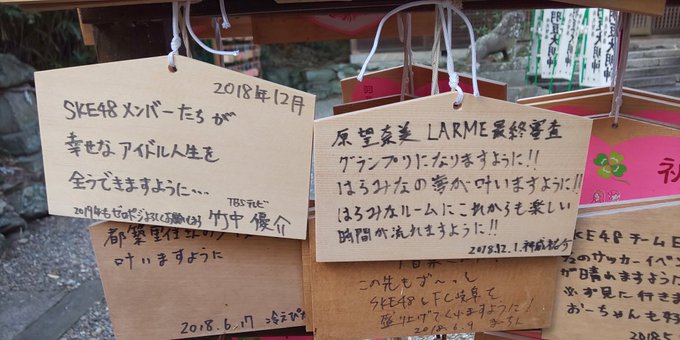 2018年12月
SKE48メンバーたちが
幸せなアイドル人生を
全うできますように…
TBSテレビ
2019年もゼロポジよろしくお願いします
竹中優介
原望奈美 LARME最終審査
グランプリになりますように!!
はろみなの夢が叶いますように!!
はろみなルームにこれからも楽しい
時間が流れますように!!
2018.12.1.
叶いますように
2018.6.17
この先もず〜っと
SKE48とFC岐阜を
盛り上げてくれますように!
2018.6.9
SKE48 チームE
のサッカーイベン
が晴れますように
必ず見に行きま
おーちゃんも
2018.5
大明神